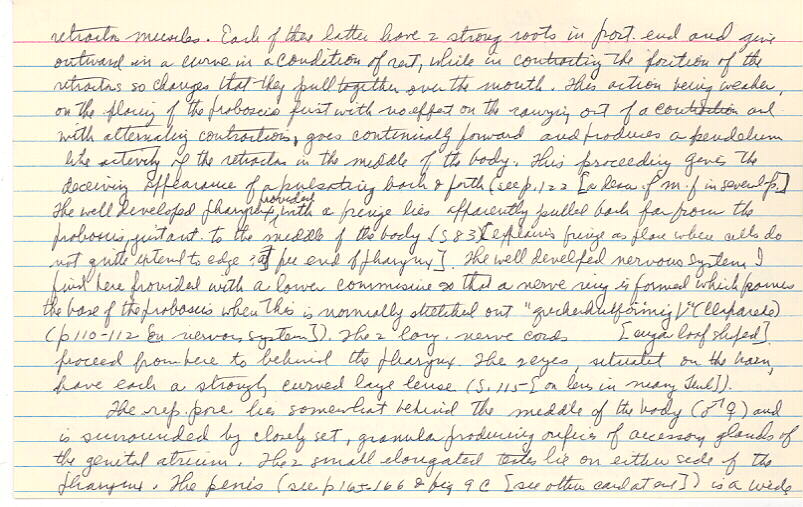 retractor muscles. Each of these latter have 2 strong roots in post. end and give
outward in a curve in a condition of rest, while in contracting the position of the
retractors so changes that they pull together over the mouth. This action being weaker,
on the placing of the proboscis first with no effect on the carrying out of a contraction and
with alternating contractions, goes continually forward and produces a pendulum
like activity of the retractors in the middle of the body. This proceeding gives the
deceiving appearance of a pulsating back & forth (see p. 122 [a leaw of m. f in several sp.]
The well developed pharynx, provided with a fringe lies apparently pulled back far from the
proboscis, just ant. to the middle of the body (S 83) [explains fringe as place where cells do
not quite extend to edge at free end of pharynx]. The well developed nervous system I
find here provided with a lower commissure so that a nerve ring is formed which passes
the base of the proboscis when this is normally stretched out "zuckerhutförmig" (Claparede)
(p 110-112 [on nervous system]). The 2 long. nerve cords [sugar loaf shaped]
proceed from here to behind the pharynx. The 2 eyes, situated on the brain,
have each a strongly curved large lense (S. 115 - [on lens in many Turb]).
The rep. pore lies somewhat behind the middle of the body (♂♀) and
is surrounded by closely set, granula producing orifices of accessory glands of
the genital atrium. The 2 small elongated testes lie on either side of the
pharynx. The penis (see p 165-166 & fig 9 C [see other card at end]) is a wide